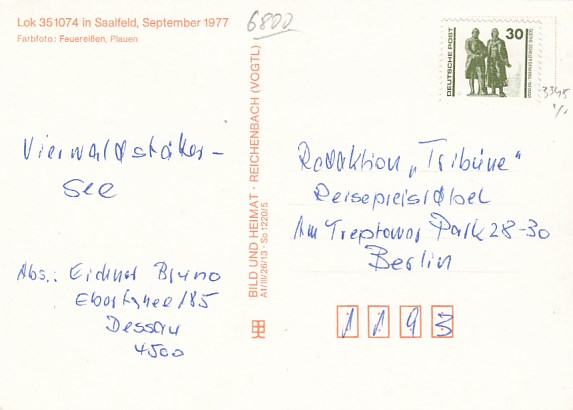 Lok 351074 in Saalfeld, September 1977
Farbfoto: Feuereißen, Plauen
6800
DEUTSCHE POST
30
3345
BILD UND HEIMAT · REICHENBACH (VOGTL)
A1/III/26/13 · So 1220/5
Vierwaldstäker-
See
Abs.: Eichner Bruno
185
Dessau
4500
Redaktion „Tribüne“
Reisepreisrätsel
Am Treptower Park 28-30
Berlin
1193